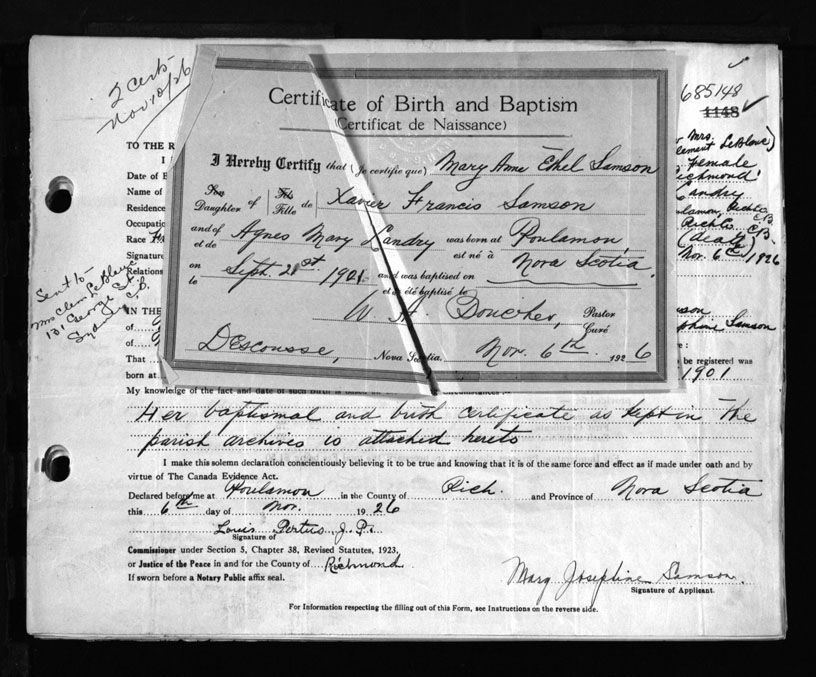 2 Certs
Nov 10/26
685148
1148
Certificate of Birth and Baptism
(Certificat de Naissance)
I Hereby Certify that (Je certifie que) Mary Anne Ethel Samson
Son
Daughter of Fils
Fille de Xavier Francis Samson
and of
et de Agnes Mary Landry was born at
est né à Poulamon
on
le Sept. 21st 1901 and was baptised on
et a été baptisé le Nova Scotia
W. A. Doucher, Pastor
Curé
Descousse, Nova Scotia. Nov. 6th 1926
Mrs.
Clement LeBlanc)
Female
Richmond
Landry
Poulamon, Rich Co. C.B.
Rich Co. C.B.
(dead)
Nov. 6th 1926
TO THE R
I
Date of B
Name of
Residence
Occupatio
Race
Signature
Relations
Sent to
Mrs Clem LeBlanc
131 George St.
Sydney C.B.
IN THE
of
of
Samson
Josephine Samson
That
be registered was
born at
1901
My knowledge of the fact and date of such birth is
Her baptismal and birth certificate as kept in the
parish archives is attached hereto
I make this solemn declaration conscientiously believing it to be true and knowing that it is of the same force and effect as if made under oath and by
virtue of The Canada Evidence Act.
Declared before me at Poulamon in the County of Rich. and Province of Nova Scotia
this 6th day of Nov. 1926
Louis Pertus, J. P.
Signature of
Commissioner under Section 5, Chapter 38, Revised Statutes, 1923,
or Justice of the Peace in and for the County of Richmond.
If sworn before a Notary Public affix seal.
Mary Josephine Samson.
Signature of Applicant.
For Information respecting the filling out of this Form, see Instructions on the reverse side.